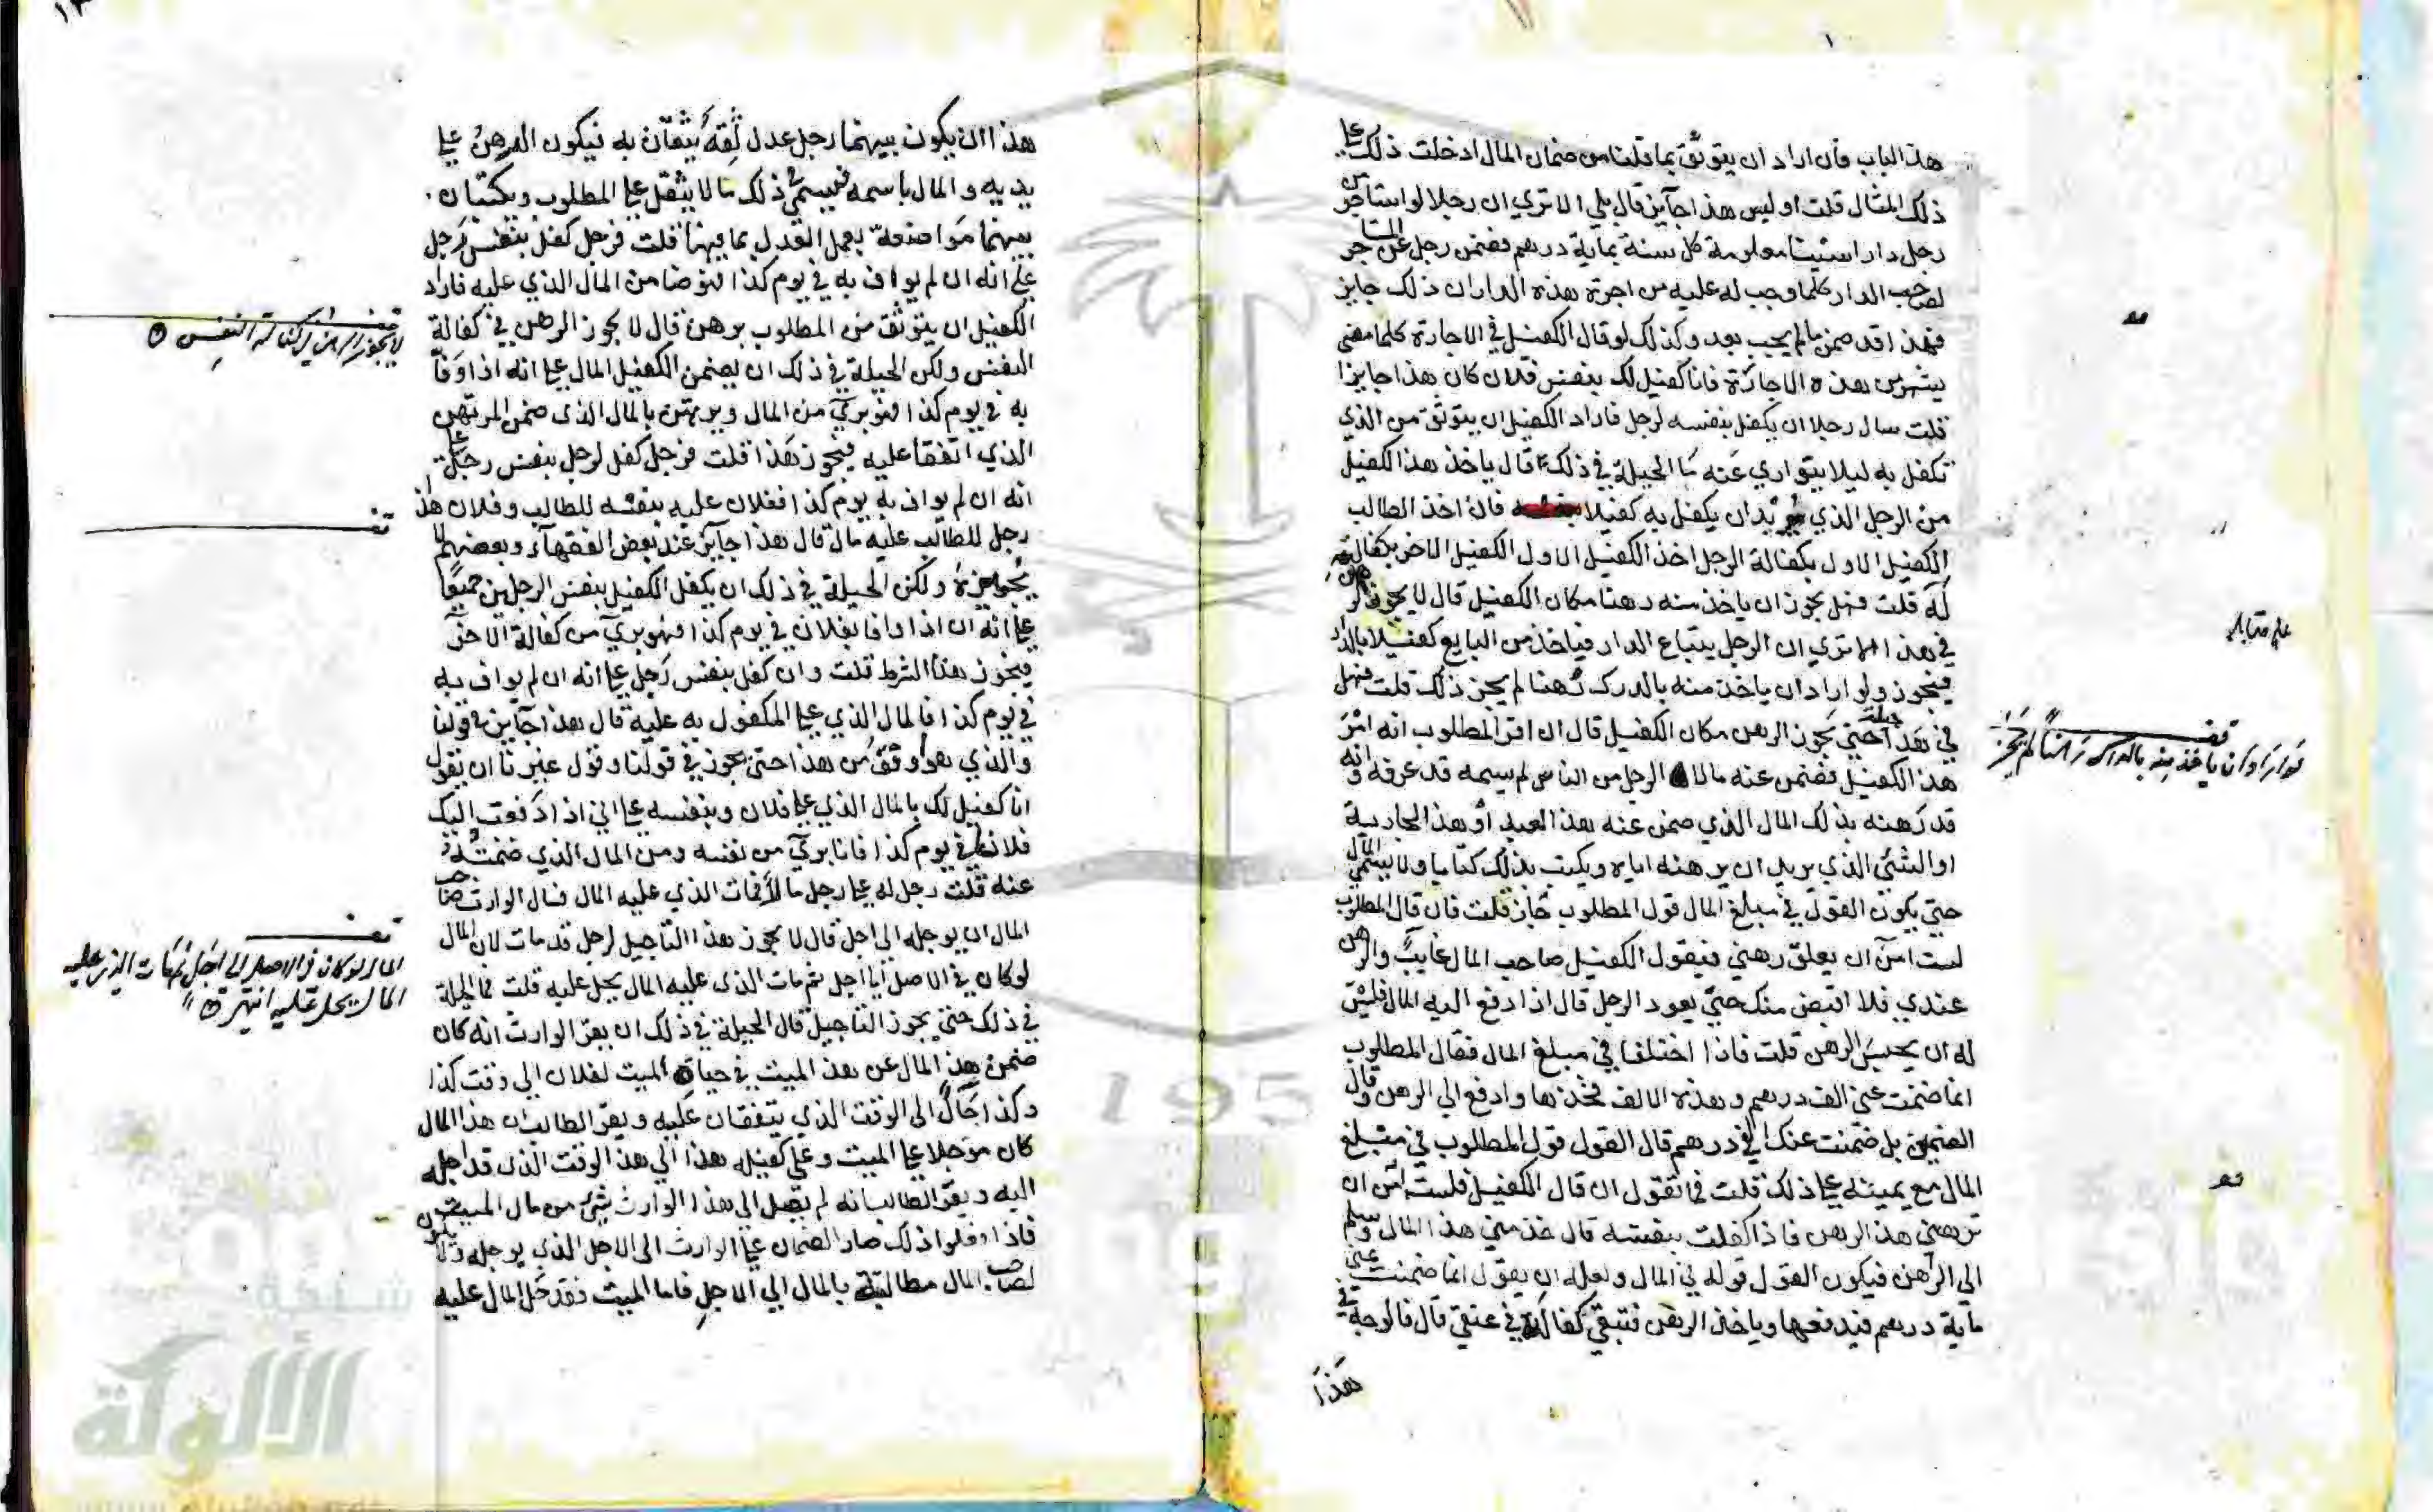 هذا الباب فان اراد ان يتوثق بما قلنا من ضمان المال ادخلت ذلك على
ذلك المثال قلت اوليس هذا جآيز قال بلي الا تري ان رجلا لو استاجر من
رجل دارا سنينا معلومة كل سنة بماية درهم فضمن رجل عن المستاجر
لصاحب الدار كلما وجب له عليه من اجرة هذه الدار ان ذلك جايز
فهذا قد ضمن مالم يجب بعد وكذلك لو قال الكفيل في الاجارة كلما مضي
شهر من هذه الاجارة فانا كفيل لك بنفس فلان كان هذا جايزا
قلت سال رجلا ان يكفل بنفسه لرجل فاراد الكفيل ان يتوثق من الذي
تكفل به ليلا يتواري عنه ما الحيلة في ذلك قال ياخذ هذا الكفيل
من الرجل الذي يريد ان يكفل به كفيلا فان اخذ الطالب
الكفيل الاول بكفالة الرجل اخذ الكفيل الاول الكفيل الاخر بكفالته
له قلت فهل يجوز ان ياخذ منه رهنا مكان الكفيل قال لا يجوز الرهن
في هذا الا تري ان الرجل يبتاع الدار فياخذ من البايع كفيلا بالدرك
فيجوز ولو اراد ان ياخذ منه بالدرك رهنا لم يجز ذلك قلت فهل
في هذا حيلة حتي يجوز الرهن مكان الكفيل قال ان اقر المطلوب انه امر
هذا الكفيل فضمن عنه مالا الرجل من الناس لم يسمه قد عرفه وانه
قد رهنه بذلك المال الذي ضمن عنه هذا العبد او هذا الجارية
او الشئ الذي يريد ان يرهنه اياه ويكتب بذلك كتابا ولا يسمي المال
حتي يكون القول في مبلغ المال قول المطلوب جاز قلت فان قال المطلوب
لست امن ان يعلق رهني فيقول الكفيل صاحب المال غايب والرهن
عندي فلا اقبض منك حتي يعود الرجل قال اذا دفع اليه المال فليس
له ان يحبس الرهن قلت فاذا اختلفا في مبلغ المال فقال المطلوب
انما ضمنت عني الف درهم وهذه الالف فخذها وادفع الي الرهن وقال
الضمين بل ضمنت عنك الفي درهم قال القول قول المطلوب في مبلغ
المال مع يمينه علي ذلك قلت فما تقول ان قال الكفيل فلست امن ان
ترهني هذا الرهن فاذا كفلت بنفسه قال خذ مني هذا المال وسلم
الى الرهن فيكون القول قوله في المال ولعله ان يقول انما ضمنت عني
ماية درهم فيدفعها وياخذ الرهن فتبقي كفالته في عنقي قال فالوجه في
هذا
لو اراد ان ياخذ منه بالدرك رهنا لم يجز
هذا ان يكون بينهما رجل عدل ثقة يثقان به فيكون الرهن علي
يديه والمال باسمه فيسمي في ذلك ما لا يثقل علي المطلوب ويكتبان
بينهما مواضعة يعمل العدل بما فيها قلت فرجل كفل بنفس رجل
علي انه ان لم يواف به في يوم كذا فهو ضامن المال الذي عليه فاراد
الكفيل ان يتوثق من المطلوب برهن قال لا يجوز الرهن في كفالة
النفس ولكن الحيلة في ذلك ان يضمن الكفيل المال علي انه اذا وفا
به في يوم كذا فهو بريّ من المال ويرتهن بالمال الذي ضمن الرهن
الذي اتفقا عليه فيجوز هذا قلت فرجل كفل لرجل بنفس رجل علي
انه ان لم يواف به يوم كذا ففلان عليه بنفسه للطالب وفلان هذا
رجل للطالب عليه مال قال هذا جآيز عند بعض الفقهآء وبعضهم لا
يجيزه ولكن الحيلة في ذلك ان يكفل الكفيل بنفس الرجلين جميعا
علي انه ان اذا وافا بفلان في يوم كذا فهو بريّ من كفالة الاخر
فيجوز هذا الشرط قلت وان كفل بنفس رجل علي انه ان لم يواف به
في يوم كذا فالمال الذي علي المكفول به عليه قال هذا جآيز في قولنا
والذي هو اوثق من هذا حتى يجوز في قولنا وقول غيرنا ان يقول
انا كفيل لك بالمال الذي علي فلان وبنفسه علي اني اذا دفعت اليك
فلانا في يوم كذا فانا بريّ من نفسه ومن المال الذي ضمنته
عنه قلت رجل له علي رجل مال فمات الذي عليه المال فسال الوارث صاحب
المال ان يوجله الي اجل قال لا يجوز هذا التاجيل لرجل قد مات لان المال
لو كان في الاصل الي اجل ثم مات الذي عليه المال يحل عليه قلت فما الحيلة
في ذلك حتي يجوز التاجيل قال الحيلة في ذلك ان يقر الوارث انه كان
ضمن هذا المال عن هذا الميت في حياة الميت لفلان الي وقت كذا
وكذا اجالا الى الوقت الذي يتفقان عليه ويقر الطالب ان هذا المال
كان موجلا علي الميت وعلي كفيله هذا الي هذا الوقت الذي قد اجله
اليه ويقر الطالب انه لم يصل الى هذا الوارث شئ من مال الميت
فاذا فعلوا ذلك صار الضمان علي الوارث الى الاجل الذي يوجله ولا يكون
لصاحب المال مطالبته بالمال الي الاجل فاما الميت فقد حل المال عليه
لا يجوز الرهن في كفالة النفس
المال لو كان في الاصل الى اجل ثم مات الذي عليه
المال يحل عليه انتهى
شبكة
الألوكة